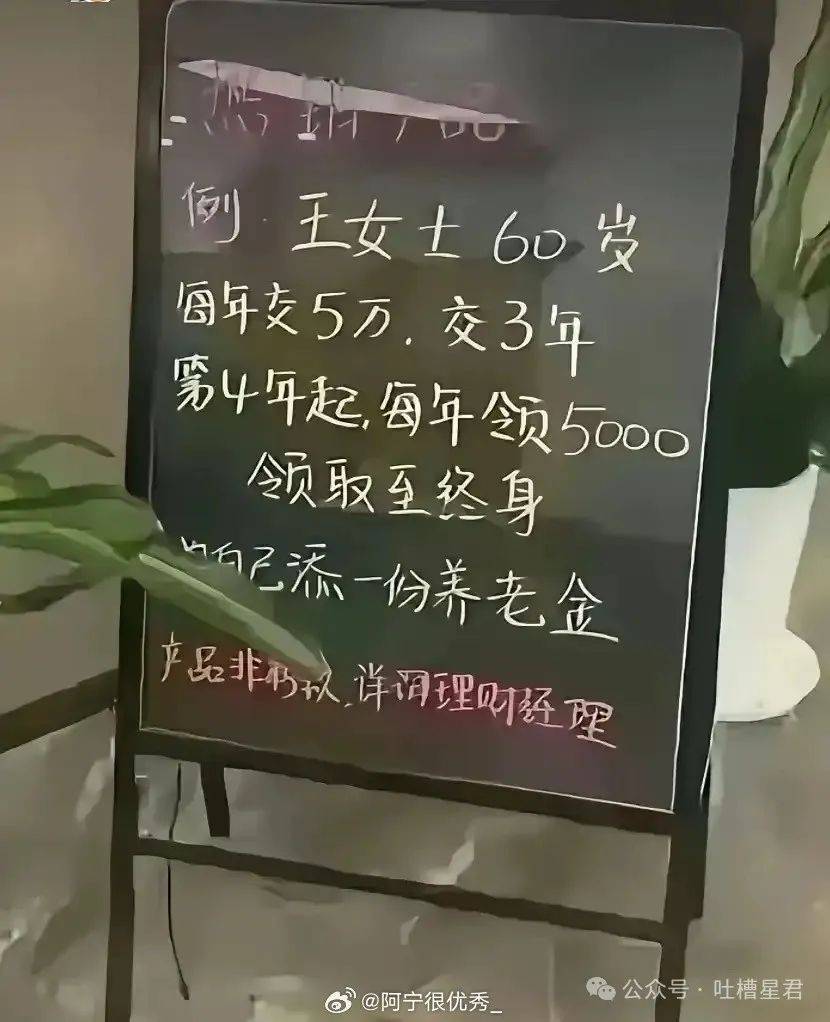 例.王女士60岁
每年交5万.交3年
第4年起,每年领5000
领取至终身
自己添一份养老金
产品非,详询理财经理
@阿宁很优秀_
公众号·吐槽星君